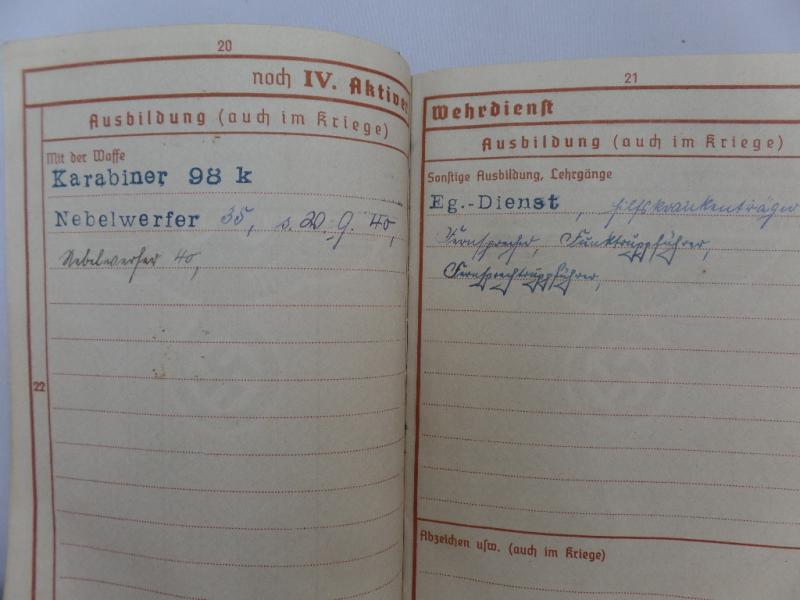 20
noch IV. Aktiver
Ausbildung (auch im Kriege)
Mit der Waffe
Karabiner 98 k
Nebelwerfer 35, s. W. G. 40,
Nebelwerfer 40,
22
21
Wehrdienst
Ausbildung (auch im Kriege)
Sonstige Ausbildung, Lehrgänge
Eg.-Dienst, Hilfskrankenträger
Fernsprecher, Funktruppführer,
Fernsprechtruppführer,
Abzeichen usw. (auch im Kriege)